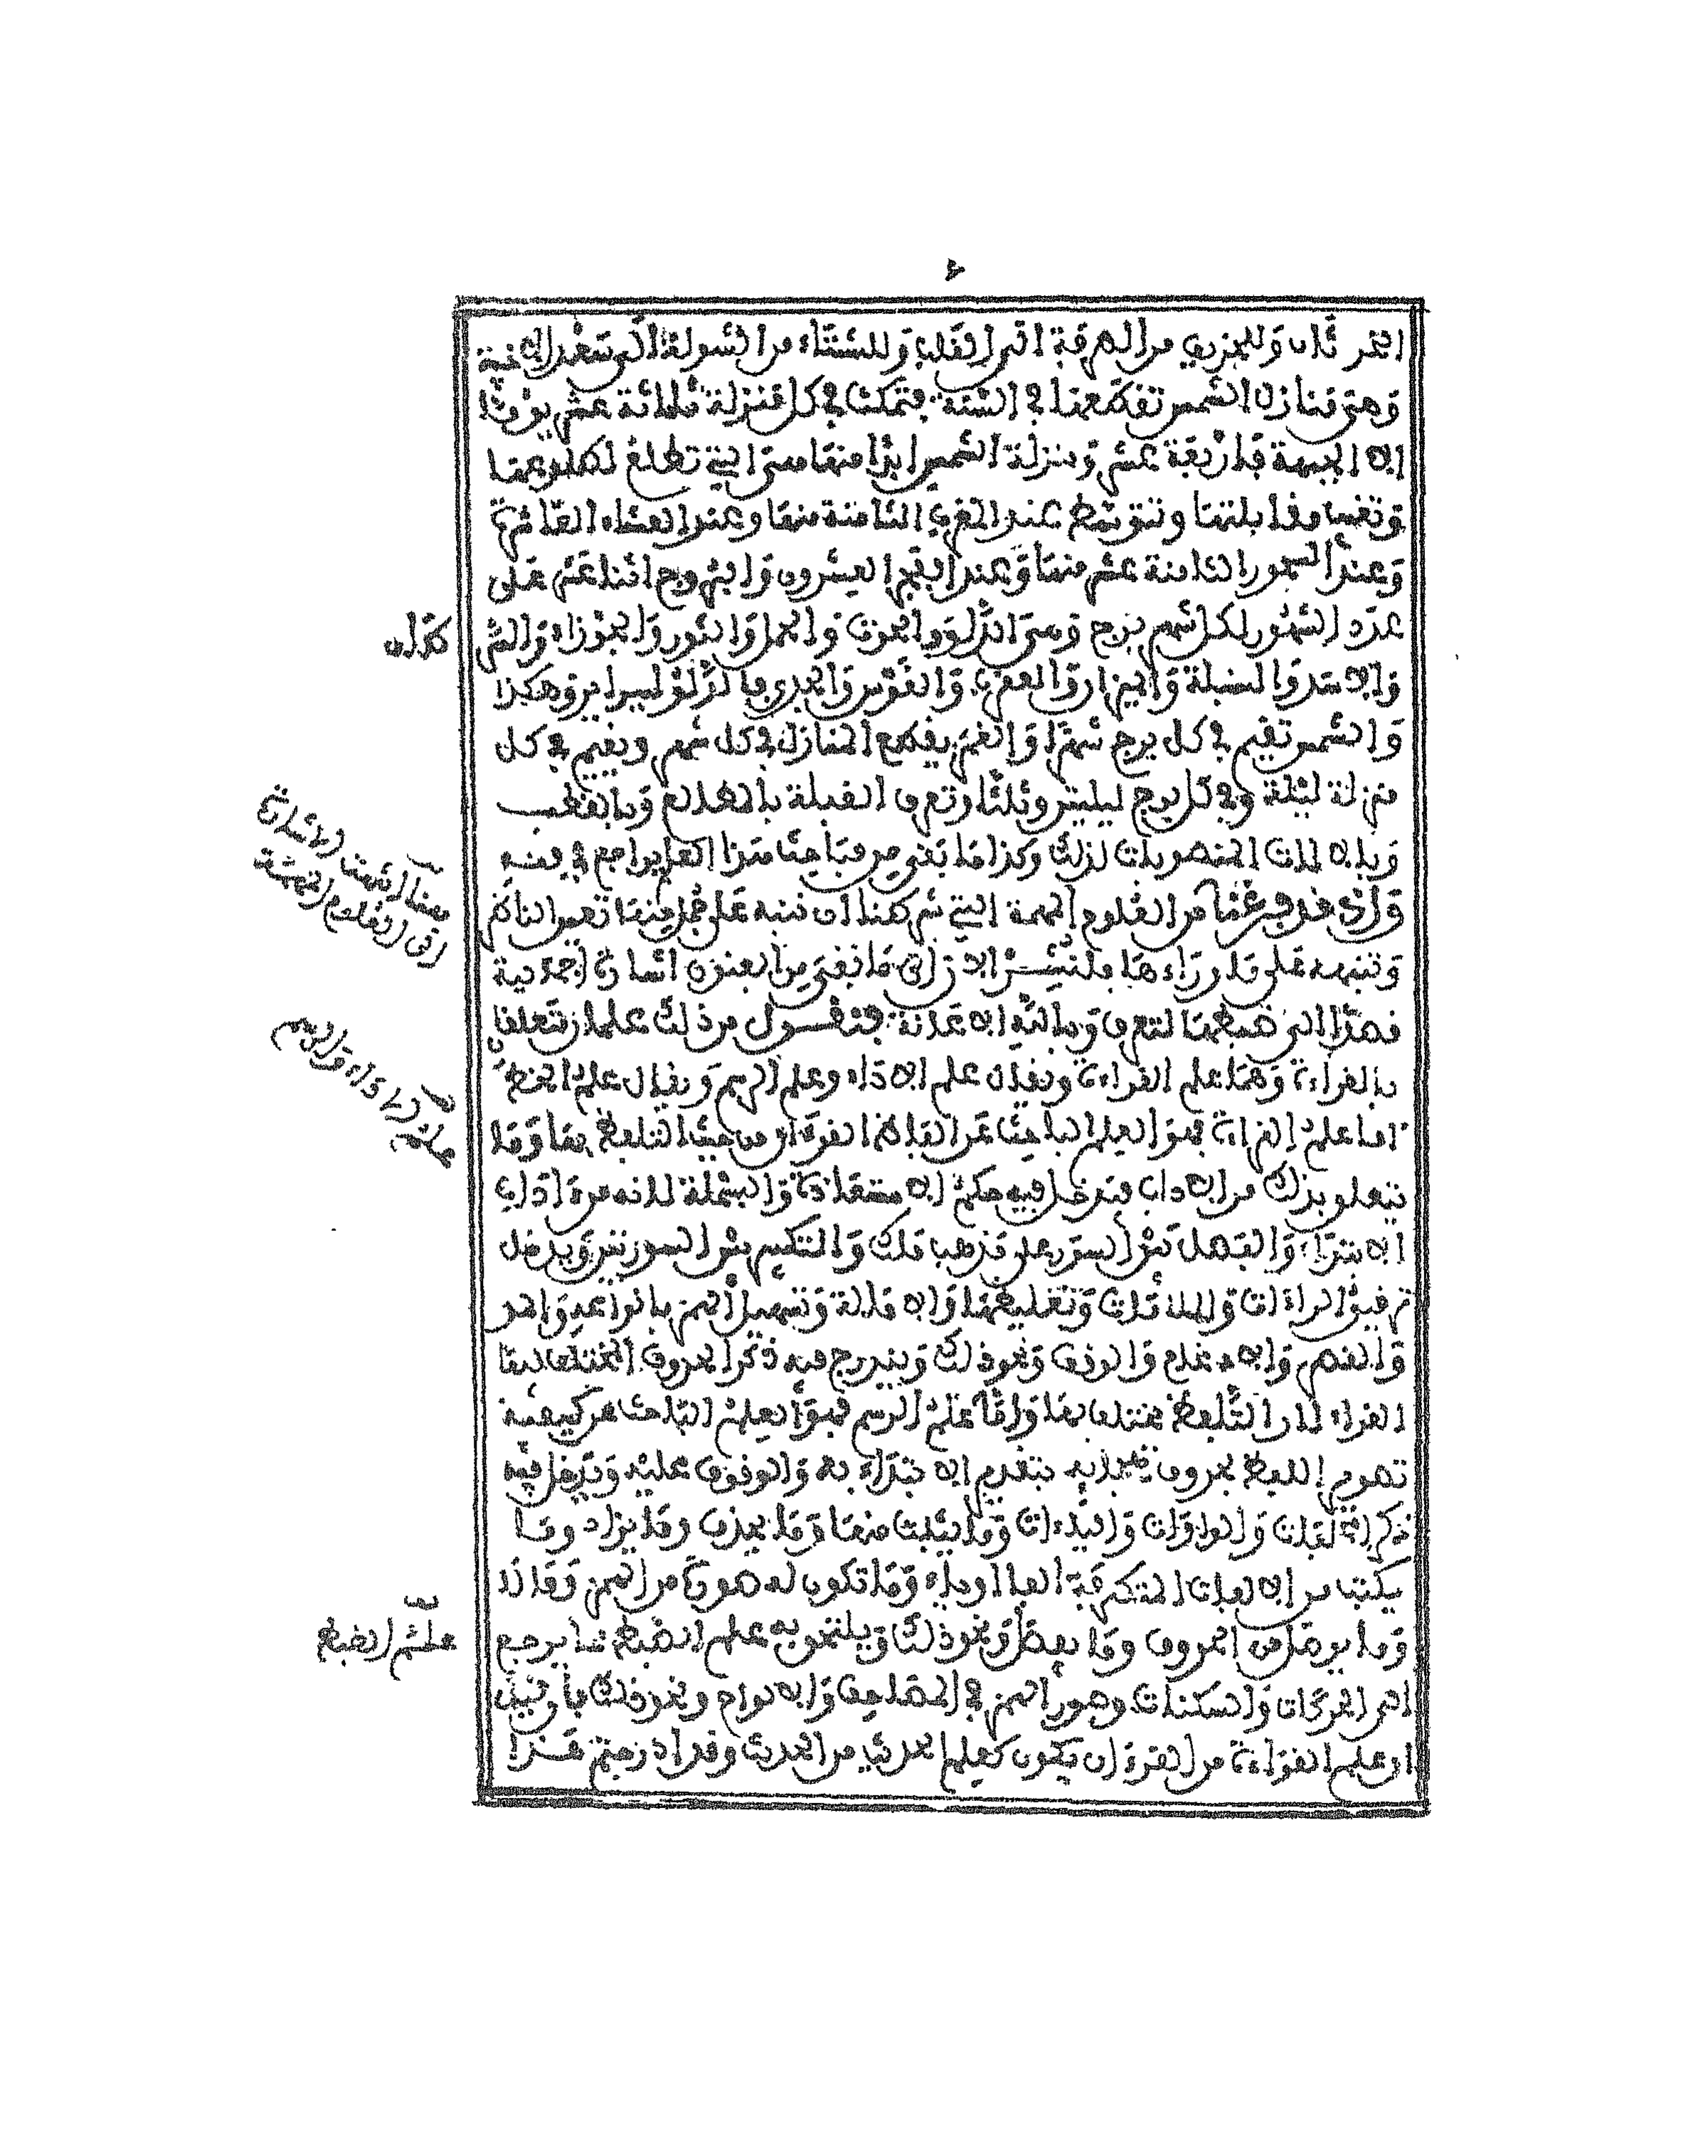 ٤
وللخريف من الصرفة الى القلب وللشتاء من الشولة الى سعد الاخبية
وهي منازل الشمس تقطعها في السنة فتمكث في كل منزلة ثلاثة عشر يوما
الا الجبهة فاربعة عشر ومنزلة الشمس ابدا منها هي التي تطلع لطلوعها
وتغيب وقابلتها وتتوسط عند المغرب الثامنة منها وعند العشاء العاشرة
وعند السحور الثامنة عشر منها وعند الفجر العشرون والبروج اثنا عشر على
عدد الشهور لكل شهر برج وهي الدلو والحوت والحمل والثور والجوزاء
والاسد والسنبلة والميزان والعقرب والقوس والجدي فالدلو لينير وهكذا
والشمس تقيم في كل برج شهرا والقمر يقطع المنازل في كل شهر ويقيم في كل
منزلة ليلة وفي كل برج ليلتين وثلثا وتعرف القبلة بالمطالع وبالقطب
وبالالات المنصوبات لذلك وكذا ما بقي من مباحث هذا العلم يراجع في فنه
واذ قد فرغنا من العلوم المهمة التي شرطنا ان ننبه على جمل منها تعين الناظر
وتنبهه على ما وراءها فلنشر الان الى ما بقي من الفنون اشارة اجمالية
فهذا الذي ضبطها لتعرف وبالله الاعانة فنقول من ذلك علمان تعلقا
بالقراءة وهما علم القراءة ويقال علم الاداء وعلم الرسم ويقال علم الخط
اما علم القراءة فهو العلم الباحث عن الفاظ القرءان من حيث التلفظ بها وما
يتعلق بذلك من الاداب فيدخل فيه حكم الاستعاذة والبسملة لانه من اداب
الابتداء والفصل بين السور على مذهب مالك والتكبير بين السورتين ويدخل
ترقيق الراءات واللامات وتغليظها والامالة وتسهيل الهمز بانواعه والمد
والقصر والادغام والوقف ونحو ذلك ويندرج فيه ذكر الحروف المختلف فيها
القراء لان التلفظ مختلف بها واما علم الرسم فهو العلم الباحث عن كيفية
تصوير اللفظ بحروف هجائه بتقدير الابتداء به والوقوف عليه ويدخل فيه
ذكر الالفات والواوات والياءات وما يثبت منها وما يحذف وما يزاد وما
يكتب من الالفات المتطرفة الفا او ياء وما تكون له صورة من الهمز وما لا
وما يوصل من الحروف وما يفصل ونحو ذلك ويلتحق به علم الضبط مما يرجع
الى الحركات والسكنات وصور الهمز في المصاحف والالواح ونحو ذلك فان قيل
ان علم القراءة من القرءان يكون كعلم الحديث من الحديث وقد ادرجتم هذا
هنا الاشارة
الى العلوم
علم الاداء والرسم
علم الضبط